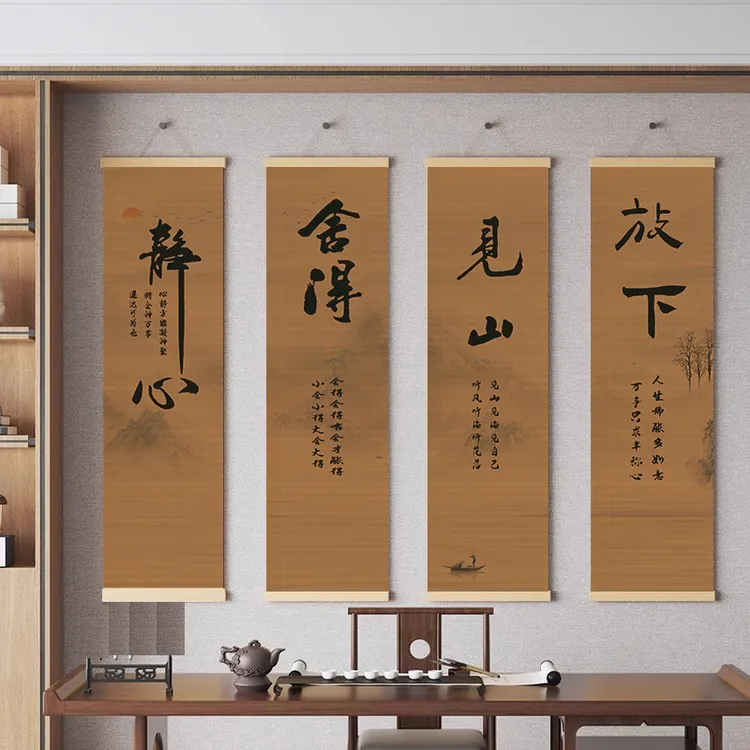 静心
心静方能凝神聚
精会神万事
通达可为也
舍得
舍得舍得有舍才能得
小舍小得大舍大得
见山
见山见海见自己
听风听海听花落
放下
人生哪能多如意
万事只求半称心